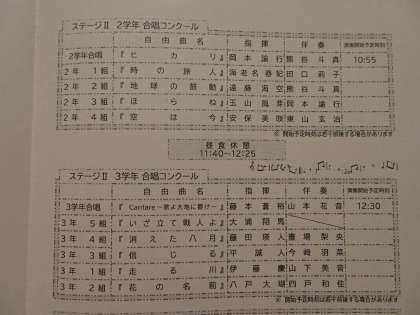 ステージⅡ 2学年 合唱コンクール
自由曲名 指揮 伴奏 演奏開始予定時刻
2学年合唱 『ヒカリ』 岡本諭行 熊谷斗真 10:55
2年 1組 『時の旅人』 海老名春妃 田口莉子
2年 2組 『地球の鼓動』 遠藤海空 熊谷斗真
2年 3組 『ほらね』 玉山風芽 岡本諭行
2年 4組 『空は今』 安保美咲 東山玄治
※ 開始予定時刻は若干前後する場合があります
昼食休憩
11:40~12:25
ステージⅡ 3学年 合唱コンクール
自由曲名 指揮 伴奏 演奏開始予定時刻
3学年合唱 『Cantare～歌よ大地に響け～』 藤本蒼裕 山本花音 12:30
3年 5組 『いざ立て戦人よ』 大浦翔馬
3年 4組 『消えた八月』 藤田瑛人 鷹場梨央
3年 3組 『信じる』 平誠人 今﨑羽菜
3年 1組 『走る川』 伊藤慶 山下美音
3年 2組 『花の名前』 八戸大瑚 四戸和佳
※ 開始予定時刻は若干前後する場合があります